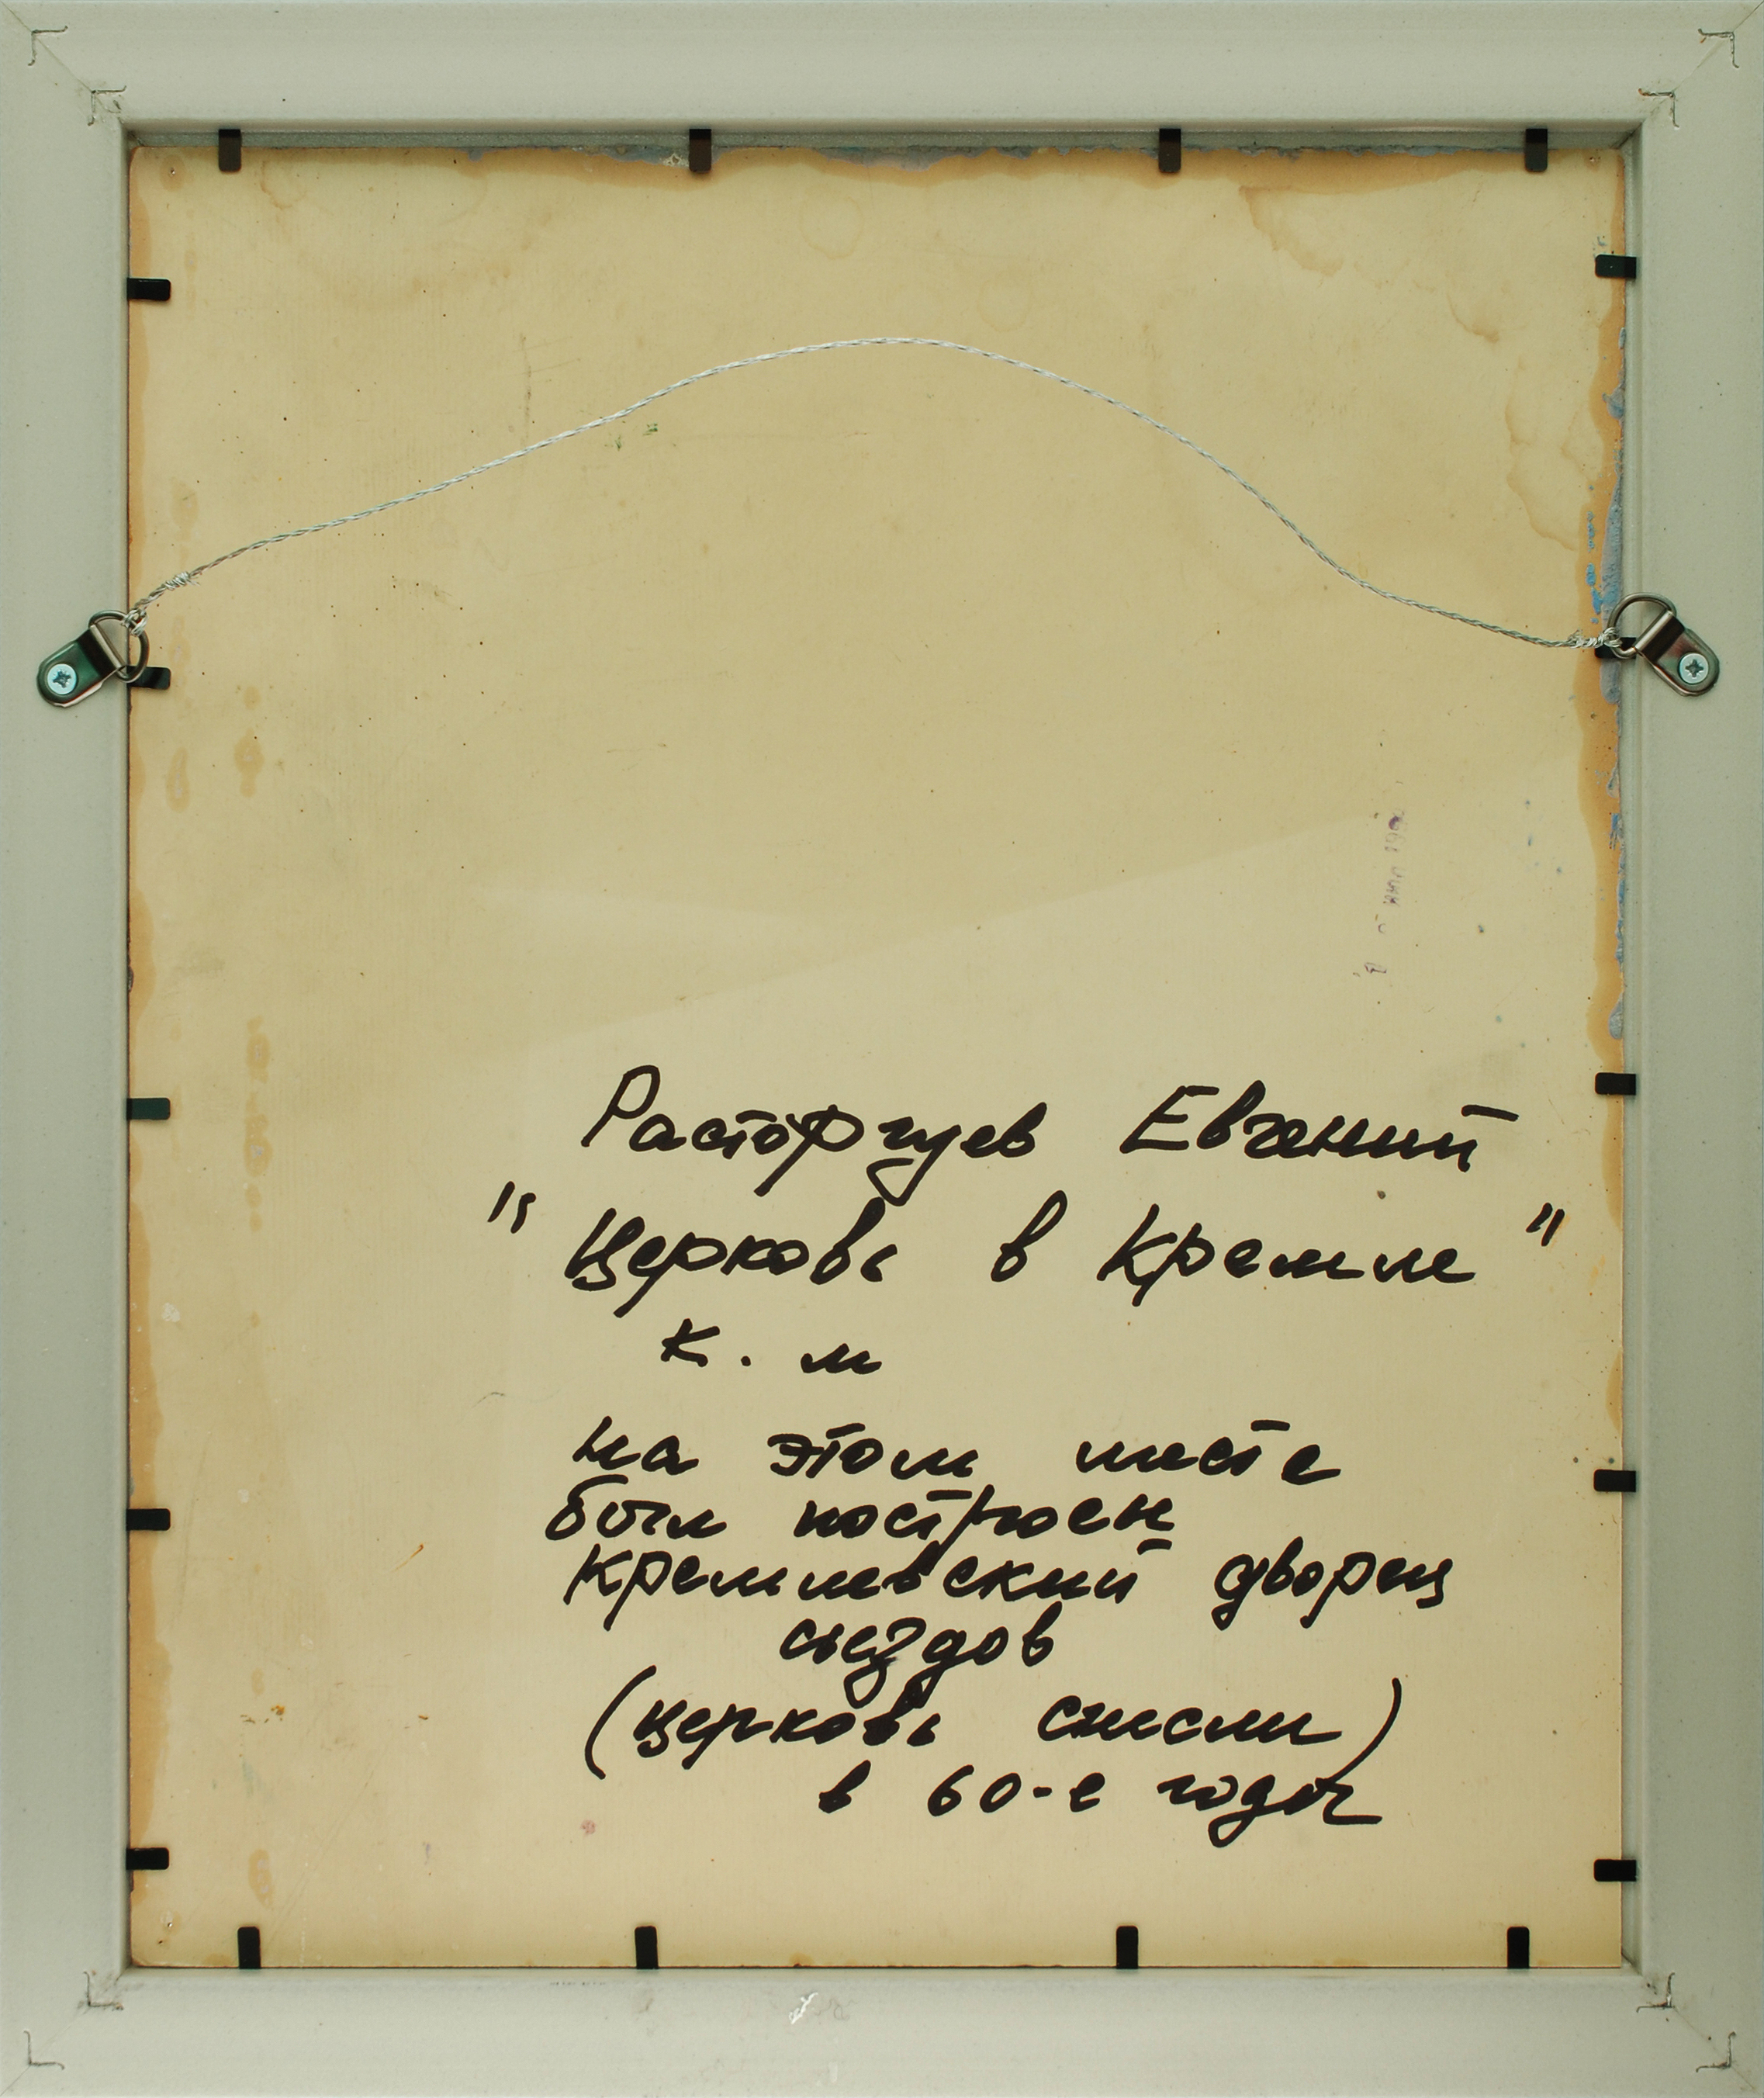 Расторгуев Евгений
"Церковь в Кремле"
к. м
на этом месте
был построен
кремлевский дворец
съездов
(церковь снесли)
в 60-е годы